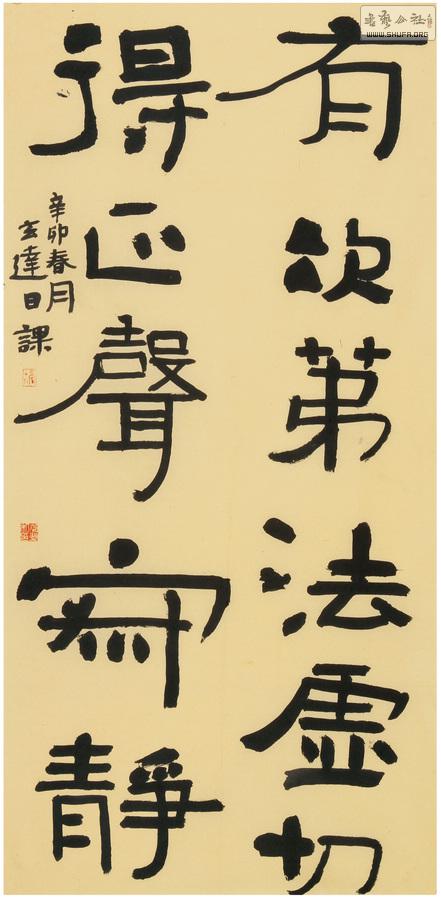 有次第法虛切
得正聲寂靜
辛卯春月
玄達日課
书艺公社
WWW.SHUFA.ORG